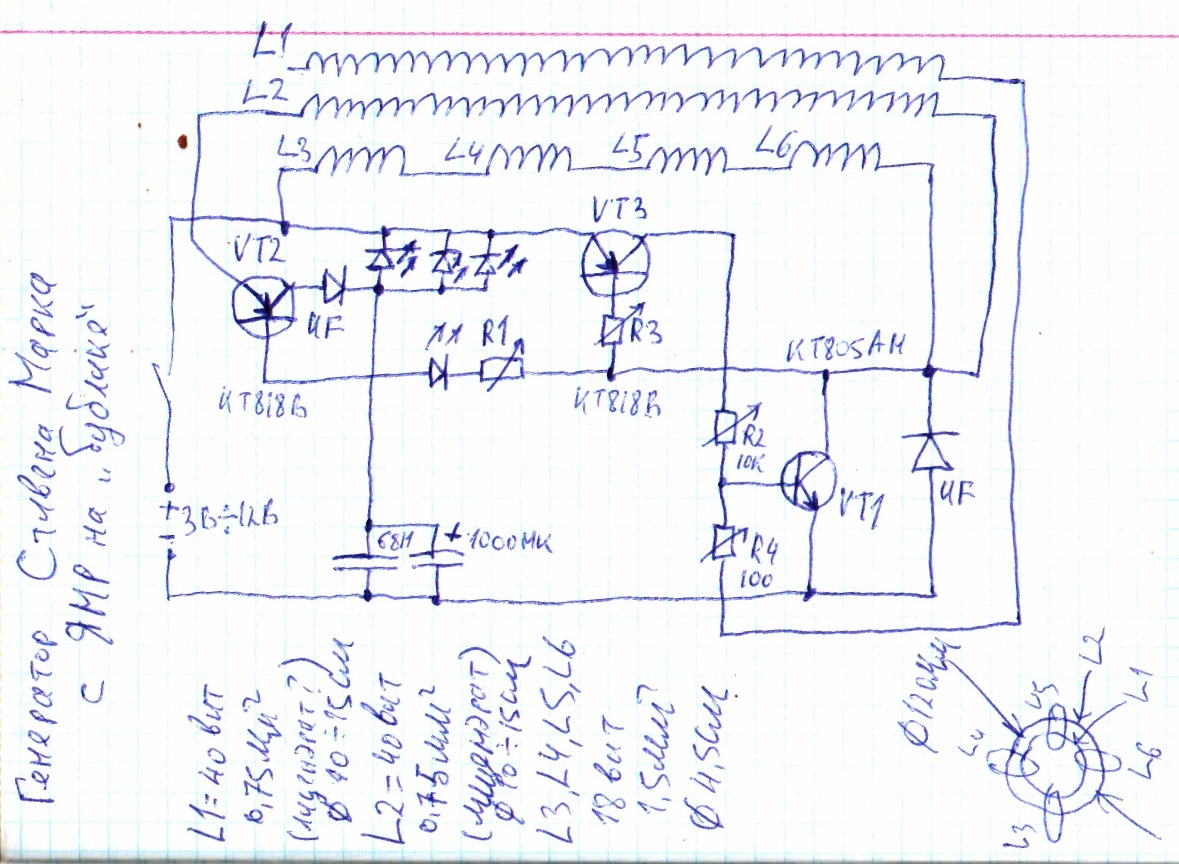 Генератор Стивена Марка
с ЯМР на „бублике"
L1
L2
L3 L4 L5 L6
VT2
VT3
UF
R1
R3
КТ805АМ
КТ818В
КТ818В
R2
10К
VT1
UF
+
3В÷12В
-
68Н
+ 1000МК
R4
100
L1=40 вит
0,75мм²
Ø 10÷15см
L2=40 вит
0,75мм²
Ø 10÷15см
L3, L4, L5, L6
18 вит
1,5мм²
Ø 4,5см
Ø120мм
L2
L1
L6
L5
L4
L3